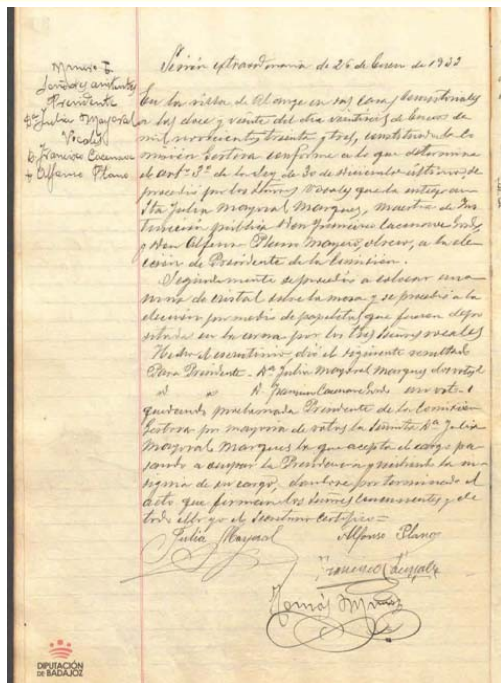 Número 2
Señores asistentes
Presidente
Dª Julia Mayoral
Vocales
D. Francisco Casanova
Alfonso Plano
Sesión extraordinaria de 26 de Enero de 1933
En la villa de Alange en sus Casas Consistoriales
a las doce y veinte del día veintiseis de Enero de
mil novecientos treinta y tres, constituida la Co
misión Gestora conforme a lo que determina
el artº 2º de la Ley de 30 de diciembre último, se
procedió por los Señores vocales que la integran
Sta Julia Mayoral Marques, maestra de Ins
trucción pública Don Francisco Casanova
y Don Alfonso Plano obrero, a la elec
ción de Presidente de la Comisión.
Seguidamente se procedió a colocar una
urna de cristal sobre la mesa y se procedió a la
elección por medio de papeletas que fueron depo
sitadas en la urna por los tres Señores vocales
Hecho el escrutinio, dió el siguiente resultado
Para Presidente - Dª Julia Mayoral Marques dos votos
D. Francisco Casanova un voto
quedando proclamada Presidente de la Comisión
Gestora por mayoría de votos la Señorita Dª Julia
Mayoral Marques la que acepta el cargo pa
sando a ocupar la Presidencia y recibiendo la in
signia de su cargo, dandose por terminado el
acto que firman los Señores concurrentes y de
todo ello yo el Secretario certifico =
Julia Mayoral
Alfonso Plano
Francisco
Tomás Muñoz
DIPUTACIÓN
DE BADAJOZ